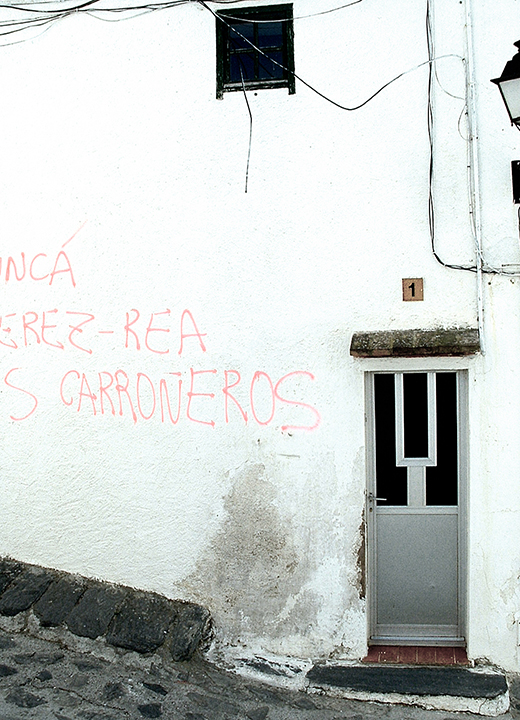 UNCÁ
PEREZ-REA
S CARROÑEROS
1